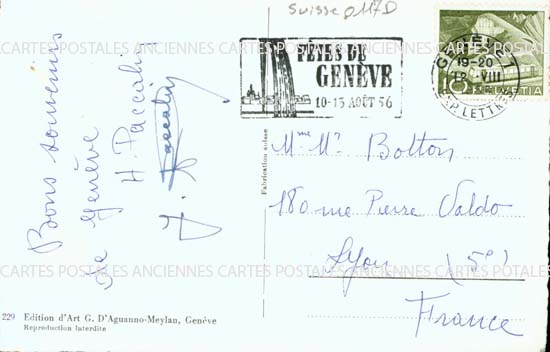 Suisse 0117D
FÊTES DE
GENÈVE
10-13 AOÛT 56
GENÈVE 1
19-20
12.VIII
EXP. LETTRES
10 HELVETIA
Bons souvenirs
de Genève
H. Paccalin
J. Paccalin
Fabrication suisse
Mme Mr Botton
180 rue Pierre Valdo
Lyon (5e)
France
CARTES POSTALES ANCIENNES CARTES POSTALES ANCIENNES CARTES POSTALES
229 Edition d'Art G. D'Aguanno-Meylan, Genève
Reproduction interdite